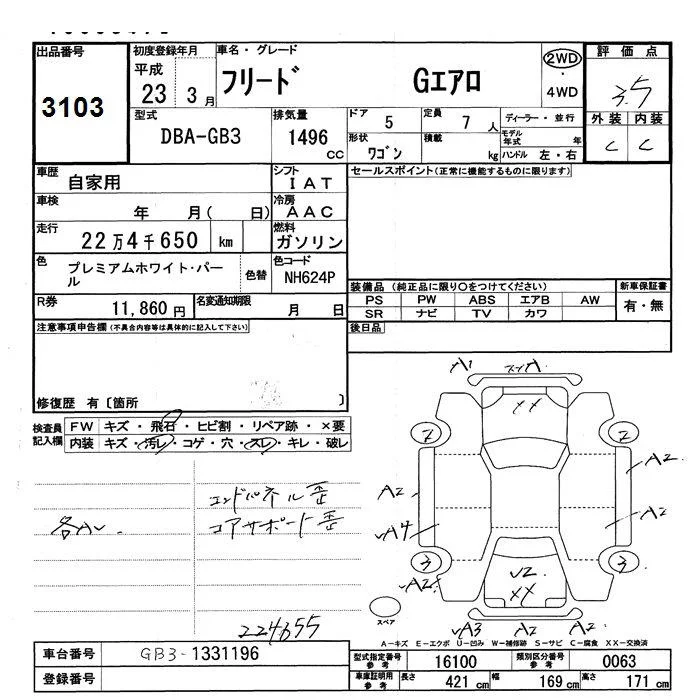 出品番号
3103
初度登録年月
平成
23 3月
車名・グレード
フリード Gエアロ
2WD
・
4WD
評価点
3.5
外装 内装
C C
型式
DBA-GB3
排気量
1496
CC
ドア 5
定員 7 人
ディーラー・並行
形状 ワゴン
積載 kg
モデル年式 年
ハンドル 左・右
車歴
自家用
シフト
IAT
車検
年 月( 日)
冷房
AAC
走行
22万4千650 km
燃料
ガソリン
色
プレミアムホワイト・パール
色替
色コード
NH624P
R券
11,860円
名変通知期限
月 日
セールスポイント(正常に機能するものに限ります)
装備品(純正品に限り○をつけてください)
PS PW ABS エアB AW
SR ナビ TV カワ
新車保証書
有・無
後日品
注意事項申告欄(不具合内容等は具体的に記入して下さい)
修復歴 有〔箇所 〕
検査員記入欄
FW キズ・飛石・ヒビ割・リペア跡・×要
内装 キズ・汚レ・コゲ・穴・スレ・キレ・破レ
エンドパネル歪
コアサポート歪
各AU.
224655
A1 A
XX
2 2
A2 A2
A4 A2
3 3
A2
U2
XX
A3 A2 A2
スペア
A-キズ E-エクボ U-凹み W-補修跡 S-サビ C-腐食 XX-交換済
車台番号
GB3-1331196
登録番号
型式指定番号
参考
16100
類別区分番号
参考
0063
車庫証明用
参考
長さ 421 cm
幅 169 cm
高さ 171 cm